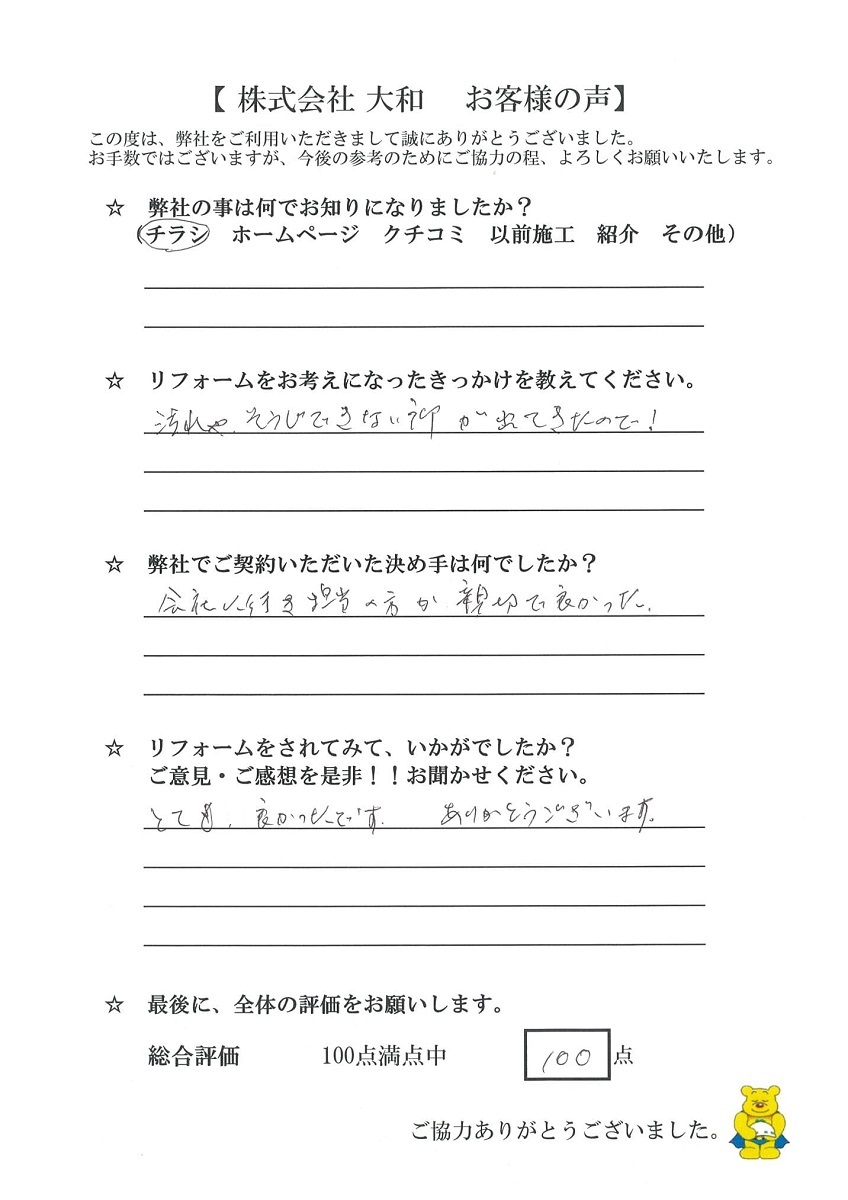 【 株式会社 大和　お客様の声】
この度は、弊社をご利用いただきまして誠にありがとうございました。
お手数ではございますが、今後の参考のためにご協力の程、よろしくお願いいたします。
☆ 弊社の事は何でお知りになりましたか？
（チラシ　ホームページ　クチコミ　以前施工　紹介　その他）
☆ リフォームをお考えになったきっかけを教えてください。
汚れや、そうじできない所が出てきたので！
☆ 弊社でご契約いただいた決め手は何でしたか？
会社に行き担当の方が親切で良かった。
☆ リフォームをされてみて、いかがでしたか？
ご意見・ご感想を是非！！お聞かせください。
とても、良かったです。　ありがとうございます。
☆ 最後に、全体の評価をお願いします。
総合評価　100点満点中　100 点
ご協力ありがとうございました。